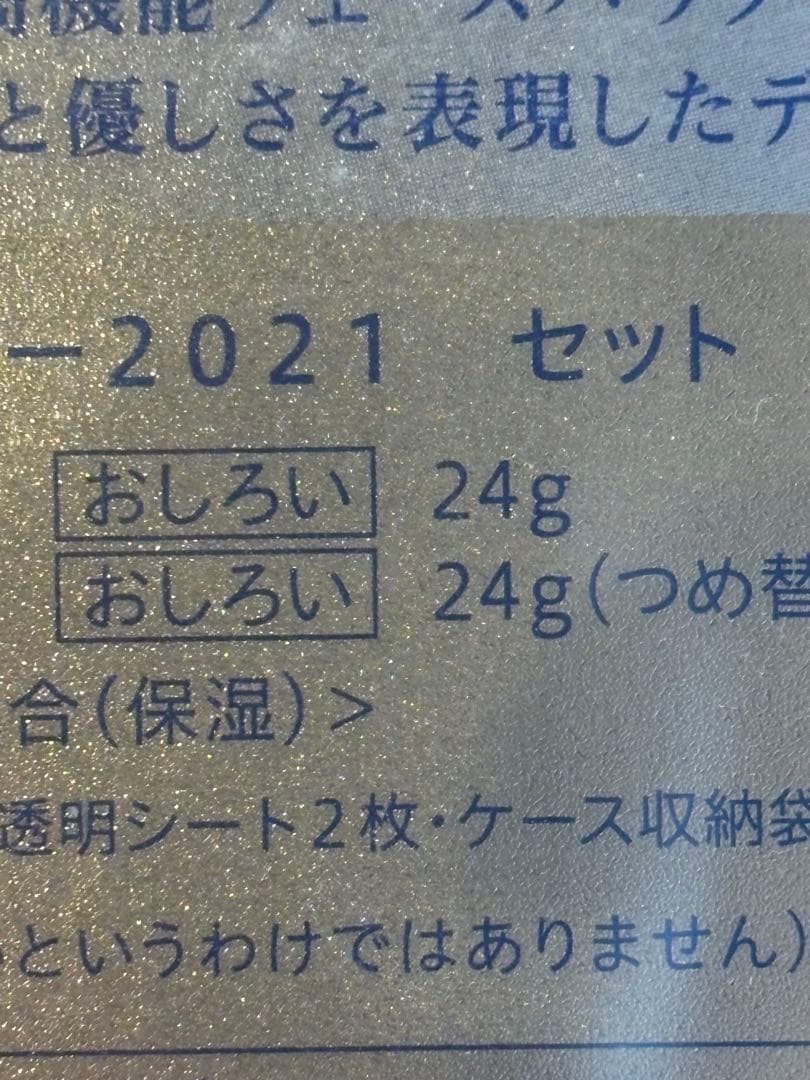 機能フェースパウダ
と優しさを表現したデ
ー2021 セット
おしろい 24g
おしろい 24g(つめ替
合(保湿)>
透明シート2枚・ケース収納袋
というわけではありません)